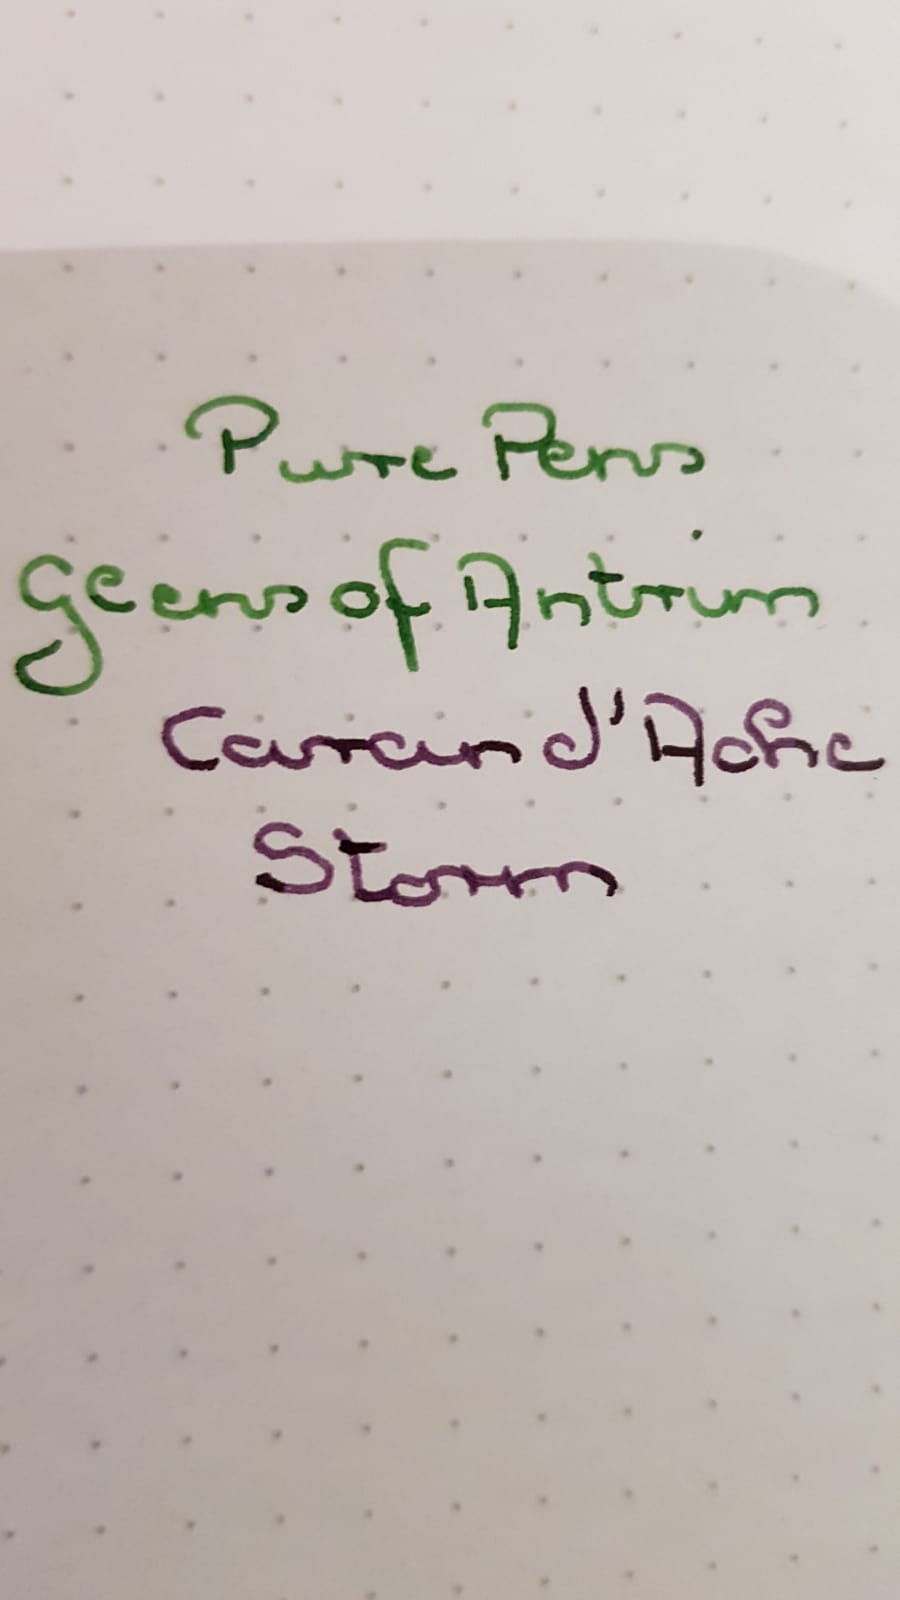 Pure Pens
Geens of Antrim
Caran d'Ache
Storm